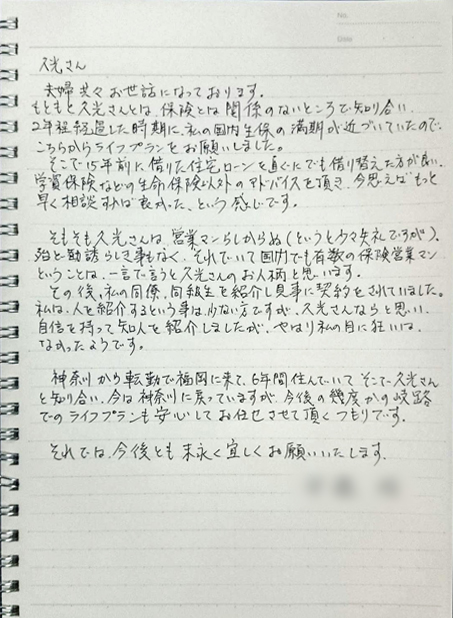 No.
Date
久光さん
夫婦共々お世話になっております。
もともと久光さんとは、保険とは関係のないところで知り合い、
2年程経過した時期に、私の国内生保の満期が近づいていたので、
こちらからライフプランをお願いしました。
そこで15年前に借りた住宅ローンを直ぐにでも借り替えた方が良い、
学資保険などの生命保険以外のアドバイスを頂き、今思えばもっと
早く相談すれば良かった、という感じです。
そもそも久光さんは、営業マンらしからぬ(というとウマ失礼ですが)、
殆ど勧誘らしき事もなく、それでいて国内でも有数の保険営業マン
ということは、一言で言うと久光さんのお人柄と思います。
その後、私の同僚、同級生を紹介し見事に契約をされていました。
私は、人を紹介するという事は少ない方ですが、久光さんならと思い、
自信を持って知人を紹介しましたが、やはり私の目に狂いは
なかったようです。
神奈川から転勤で福岡に来て、6年間住んでいてそこで久光さん
と知り合い、今は神奈川に戻っていますが、今後の幾度かの岐路
でのライフプランも安心してお任せさせて頂くつもりです。
それでは、今後とも末永く宜しくお願いいたします。